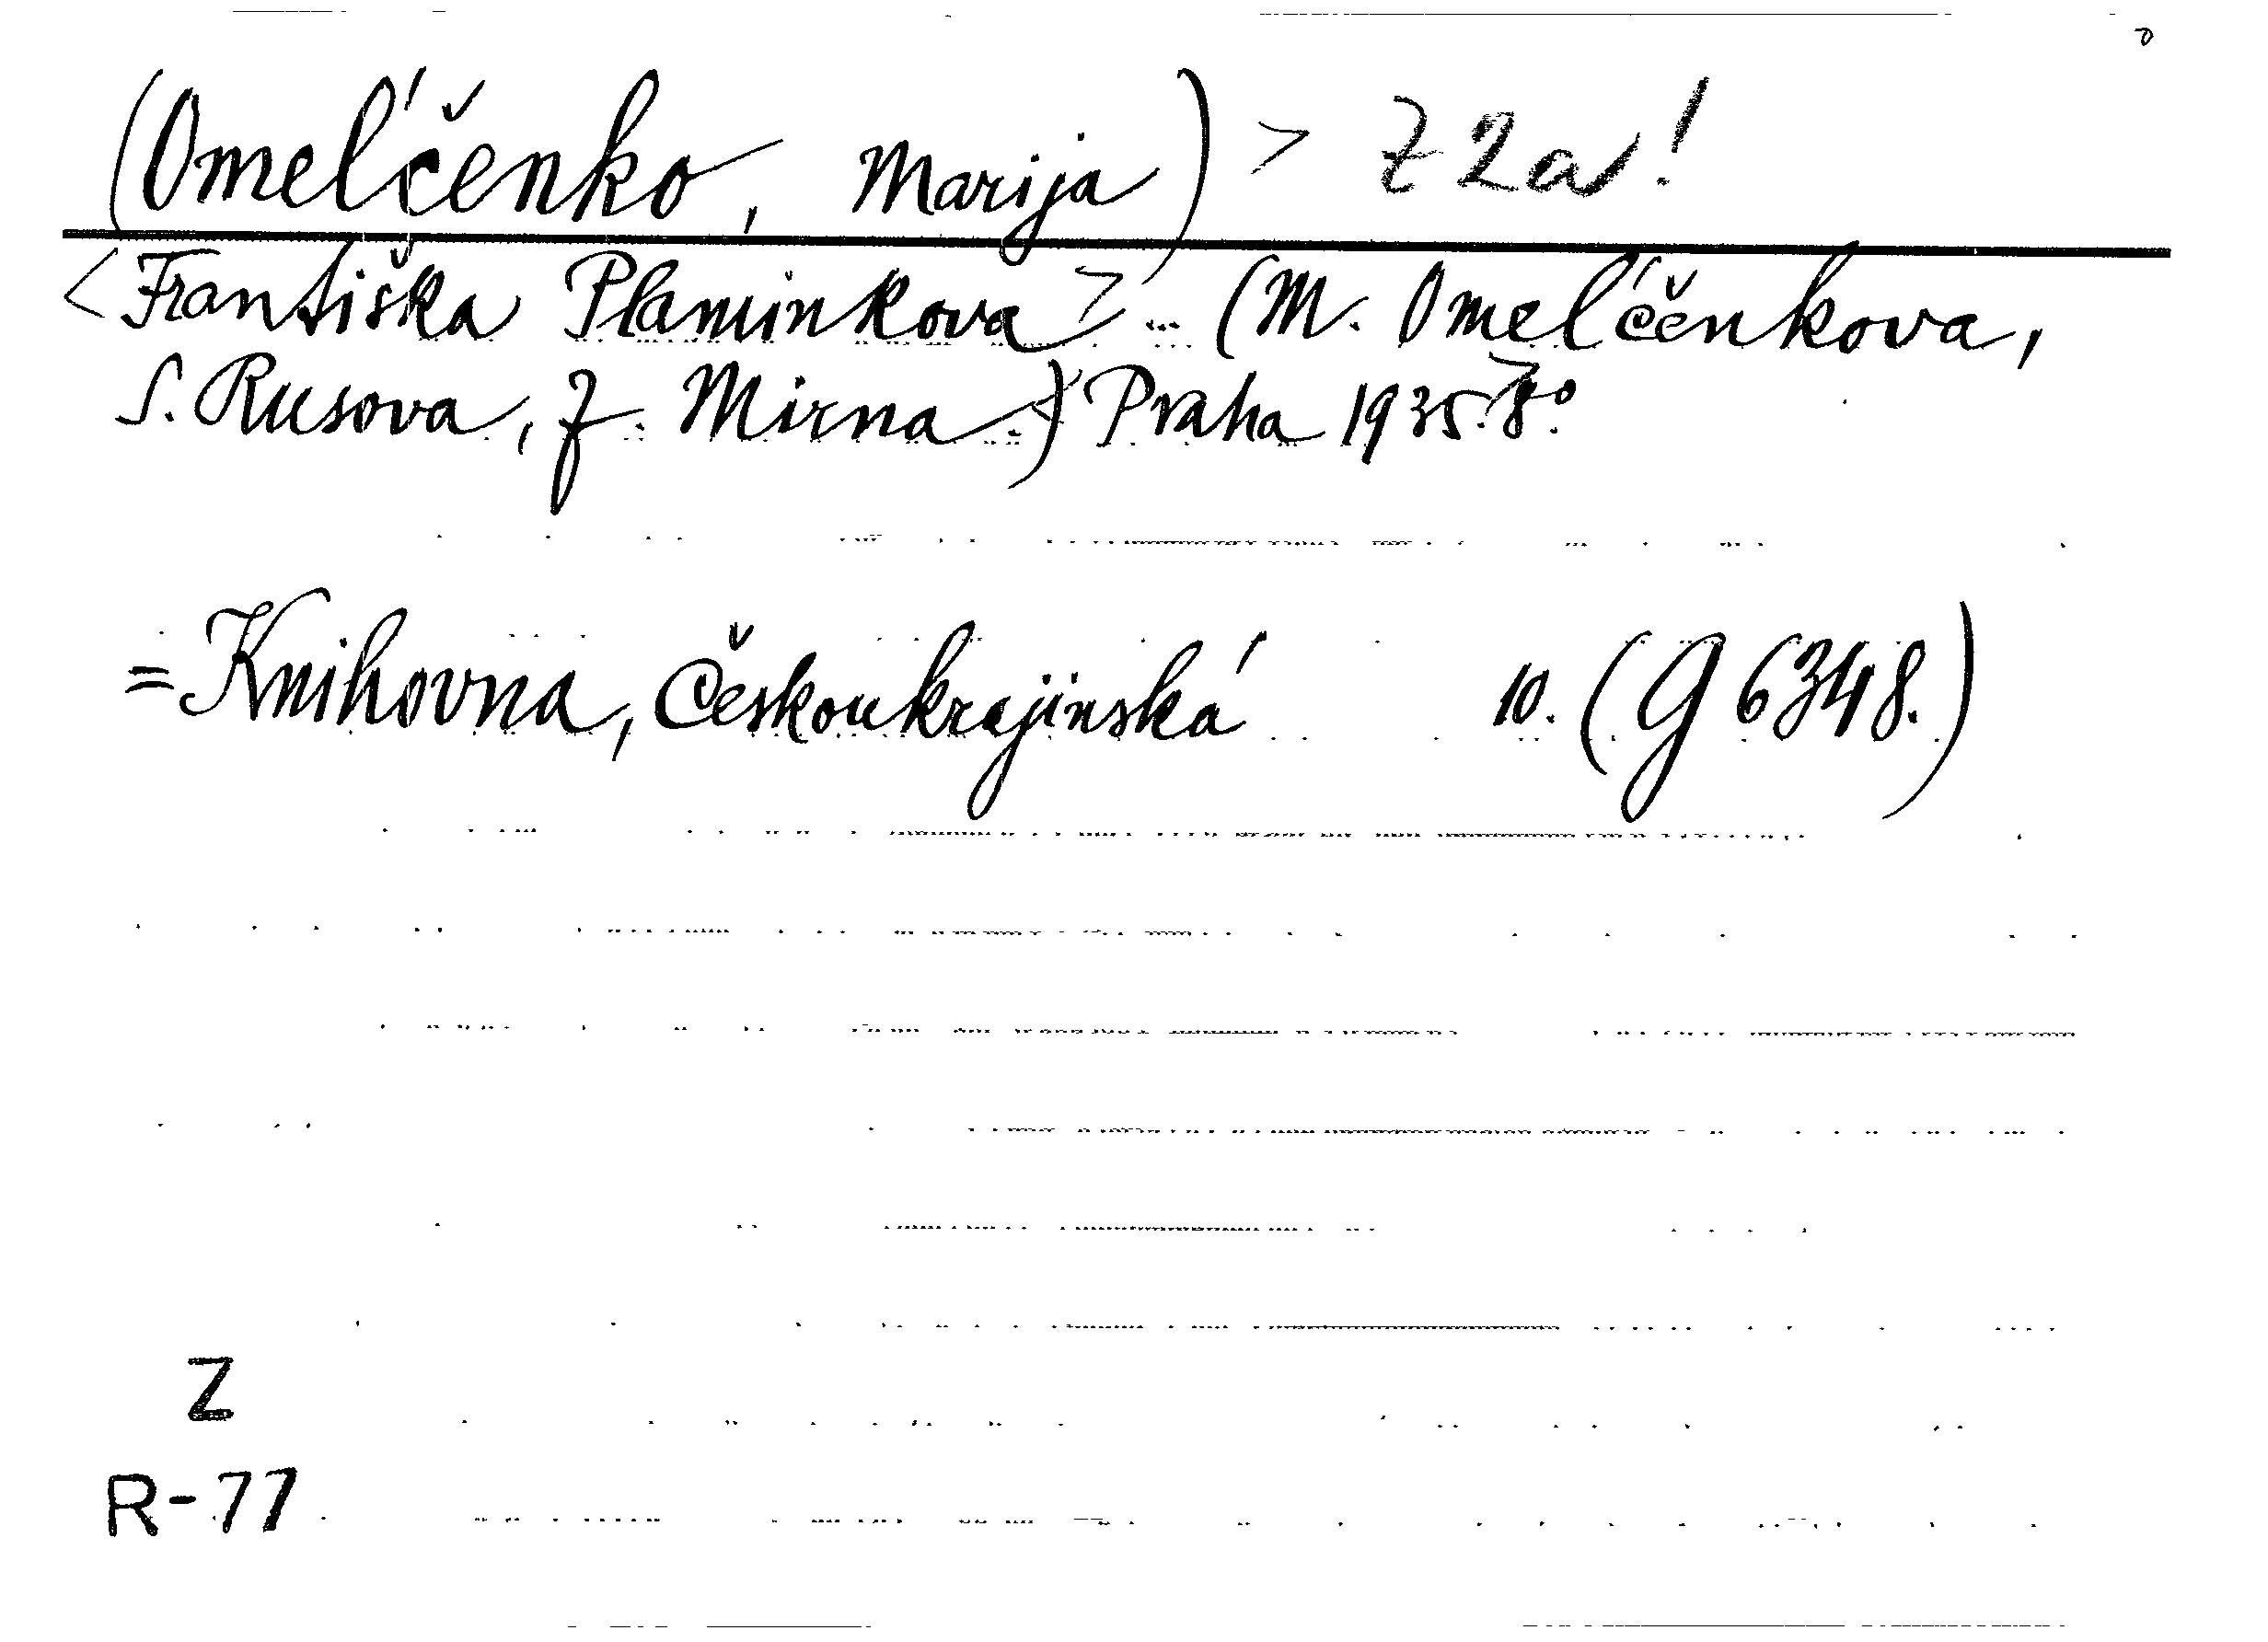 (Omel'čenko, Marija) > Z 2a!
<Františka Plaminkova> ... (M. Omel'čenkova,
S. Rusova, Z. Mirna.) Praha 1935. 8°.
= Knihovna, Českoukrajinská 10. (G 6348.)
Z
R-77